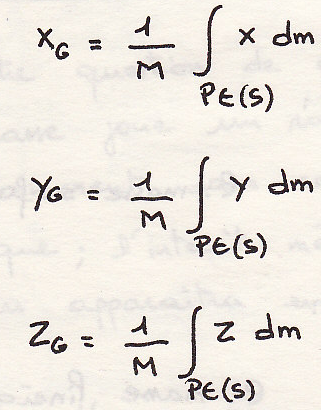 x_G = 1/M ∫_{P∈(S)} x dm
y_G = 1/M ∫_{P∈(S)} y dm
z_G = 1/M ∫_{P∈(S)} z dm